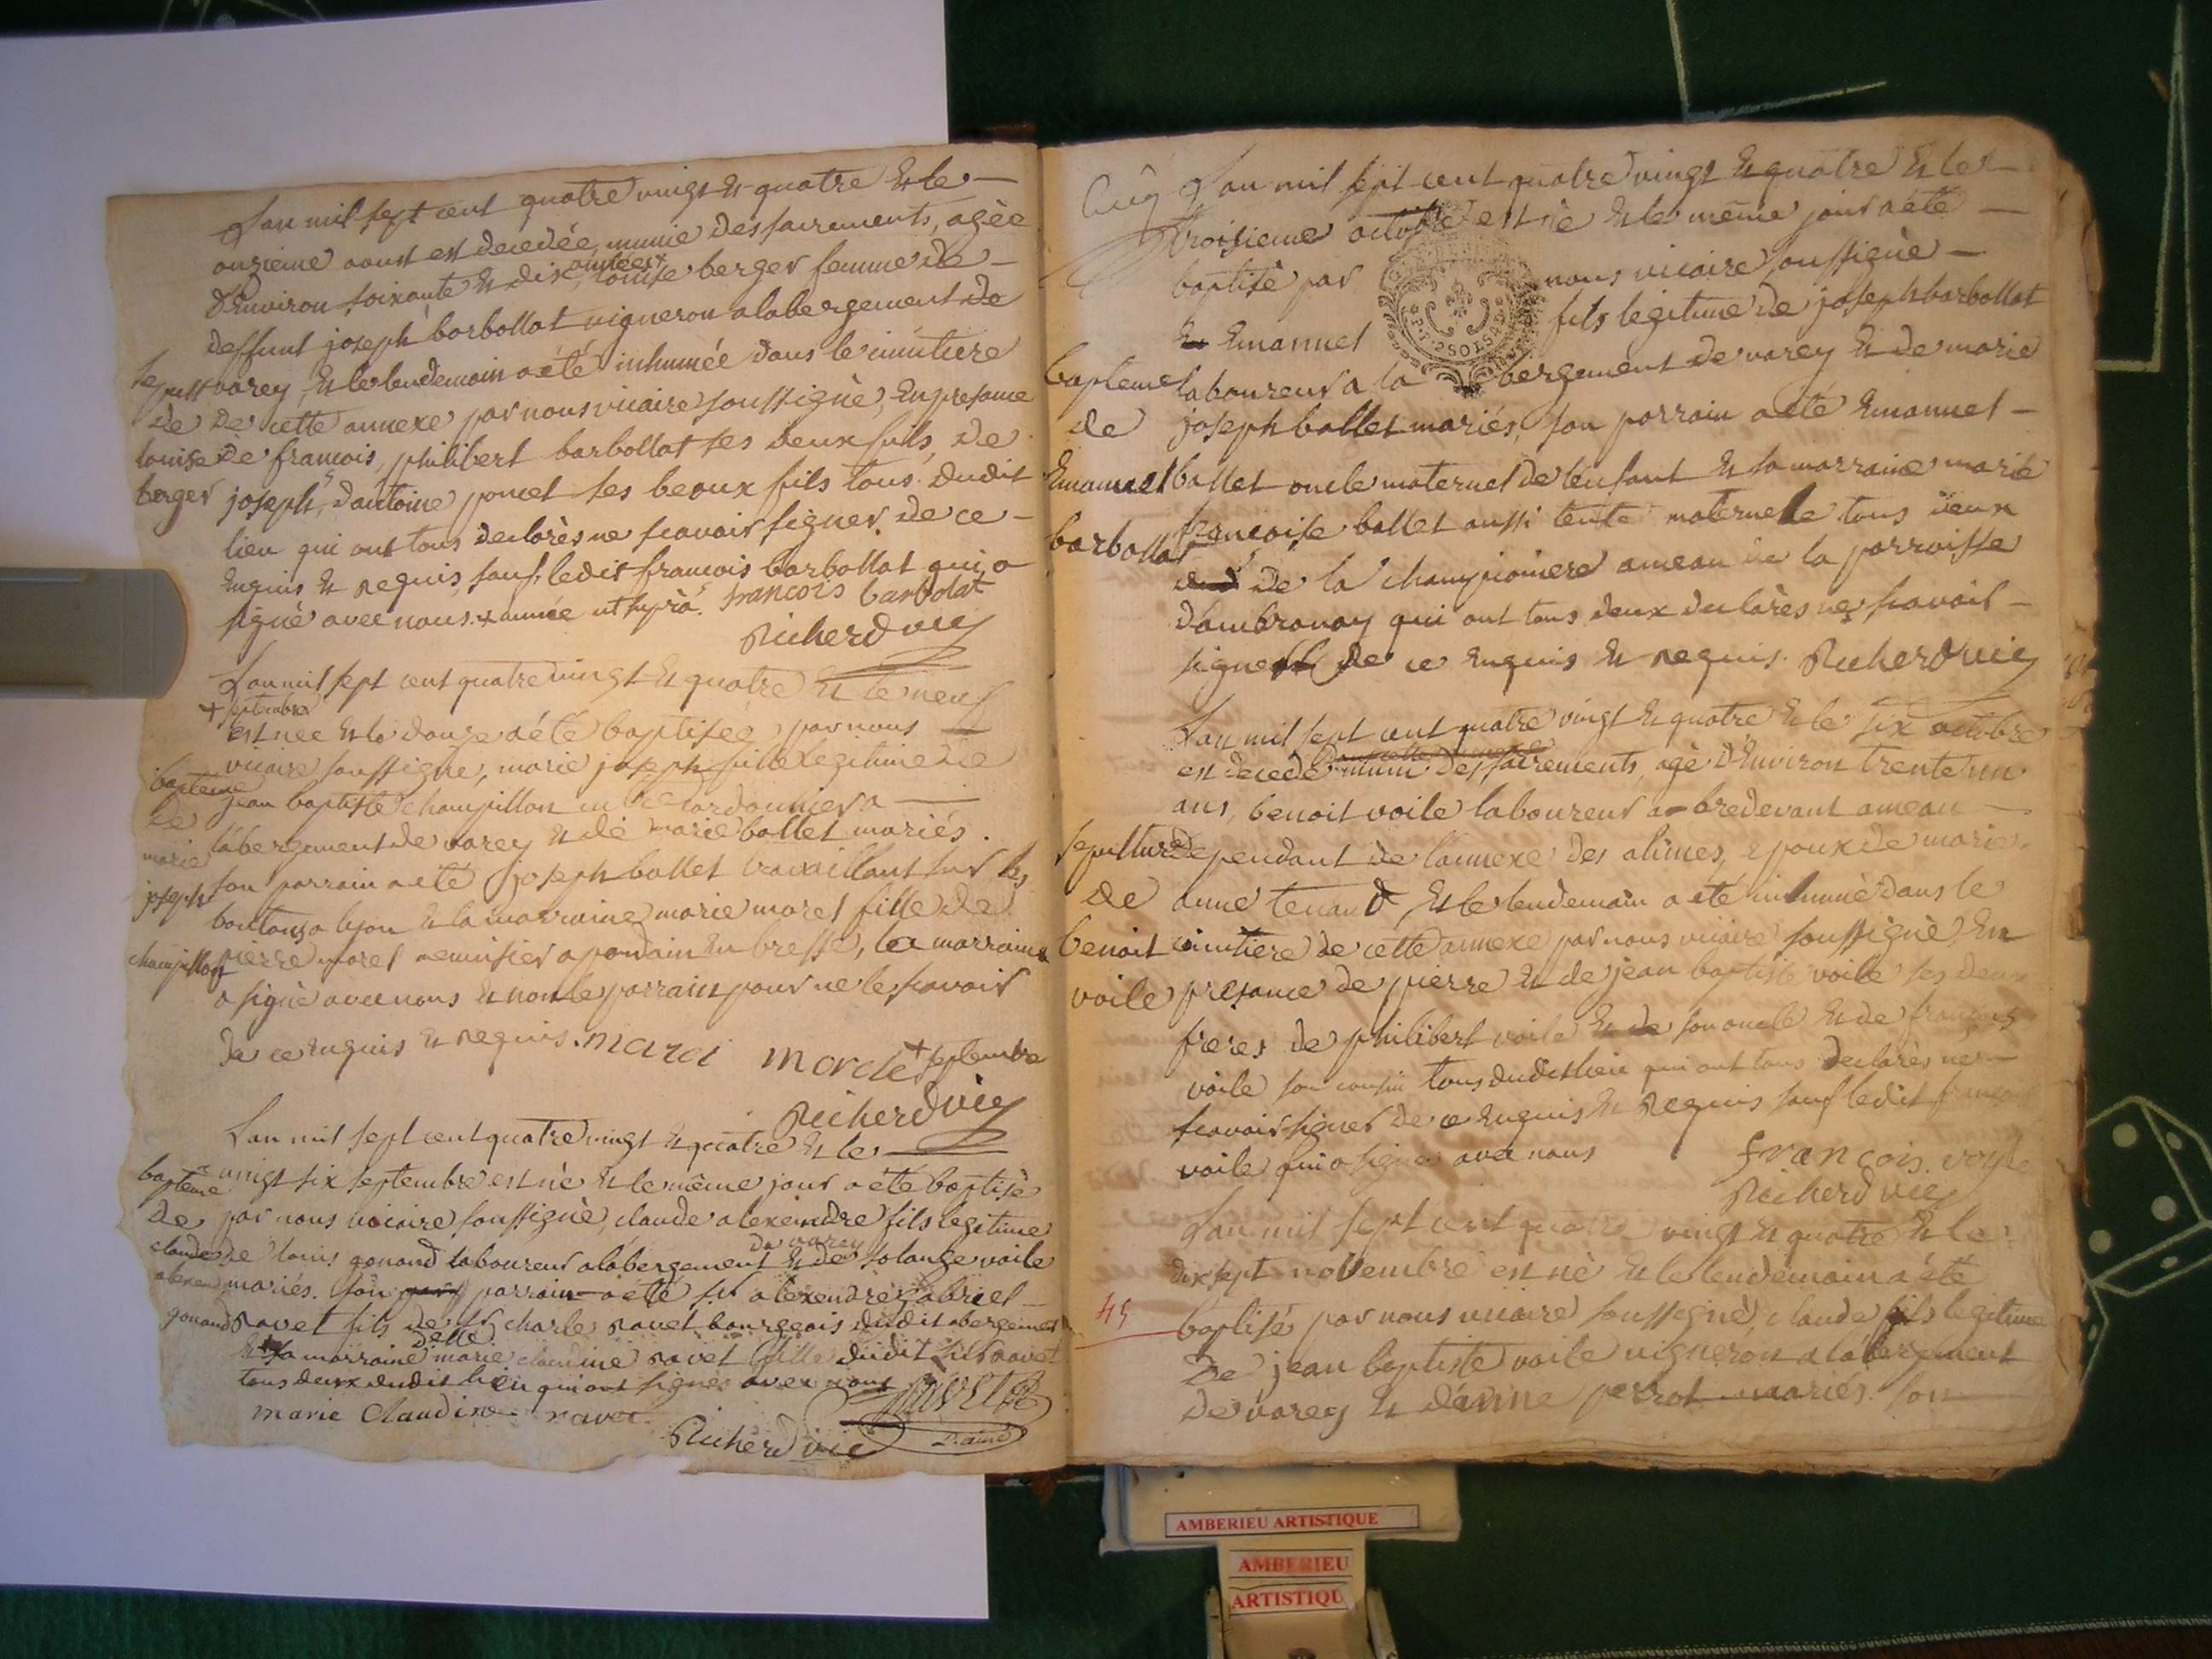 L'an mil sept cent quatre vingt et quatre et le
onzieme aoust est decedée, munie des sacrements, agée
d'environ soixante et dix années+ louise berger femme de
deffunt joseph barbollat vigneron a labergement de
varey, et le lendemain a été inhumée dans le cimitiere
de cette annexe par nous vicaire soussigné, en presance
de francois, philibert barbollat ses deux fils, de
joseph, d'antoine poncet ses beaux fils tous dudit
lieu qui ont tous declarés ne scavoir signer de ce
enquis et requis, sauf ledit francois barbollat qui a
signé avec nous + année ut supra. francois barbolat
Richerd vic
sepult
de
louise
berger
L'an mil sept cent quatre vingt et quatre et le neuf
+ septembre
est née et le douze a été baptisée par nous
vicaire soussigné, marie joseph fille legitime de
jean baptiste champillon cordonnier a
labergement de varey et de marie ballet mariés.
son parrain a été joseph ballet travaillant sur les
boutons a lyon et la marraine marie morel fille de
pierre morel menuisier a pondain en bresse, la marraine
a signé avec nous et non le parrain pour ne le scavoir
de ce enquis et requis. marai morele + septembre
Richerd vic
bapteme
de
marie
joseph
champillon
L'an mil sept cent quatre vingt et quatre et le
vingt six septembre est né et le même jour a été baptisé
par nous vicaire soussigné, claude alexeindre fils legitime
de louis gonand laboureur a labergement de varey et de solange voile
mariés. son parrain a été sr alexendre gabriel
ravet fils de sr charle ravet bourgeois dudit abergement
et sa marraine delle marie claudine ravet fille dudit ravet
tous deux dudit lieu qui ont signés avec nous
marie Claudine ravet
RAVET
Richerd vic
bapteme
de
claude
alexen
gonand
L'an mil sept cent quatre vingt et quatre et le
troisieme octobre est né et le même jour a été
baptisé par nous vicaire soussigné
Emanuel fils legitime de joseph barbollat
laboureur a la bergement de varey et de marie
joseph ballet mariés, son parrain a été Emanuel
ballet oncle maternel de lenfant et sa marraine marie
francoise ballet aussi tente maternelle tous deux
de la championiere ameau de la parroisse
d'ambronay qui ont tous deux declarés ne scavoir
signer de ce enquis et requis. Richerd vic
bapteme
de
Emanuel
barbollat
SOLS
L'an mil sept cent quatre vingt et quatre et le six octobre
est decedé muni des sacrements, agé d'environ trente un
ans, benoit voile laboureur a bredevant ameau
dependant de l'annexe des alimes, epoux de marie
anne tenand et le lendemain a été inhumé dans le
cimitiere de cette annexe par nous vicaire soussigné, en
presance de pierre et de jean baptiste voile ses deux
freres de philibert voile son oncle et de françois
voile son cousin tous dudit lieu qui ont tous declarés ne
scavoir signer de ce enquis et requis sauf ledit françois
voile qui a signé avec nous françois voyle
Richerd vic
sepulture
de
benoit
voile
L'an mil sept cent quatre vingt et quatre et le
dix sept novembre est né et le lendemain a été
baptisé par nous vicaire soussigné, claude fils legitime
de jean baptiste voile vigneron a labergement
de varey et d'anne perrot mariés. son
45
AMBERIEU ARTISTIQUE
AMBERIEU
ARTISTIQU